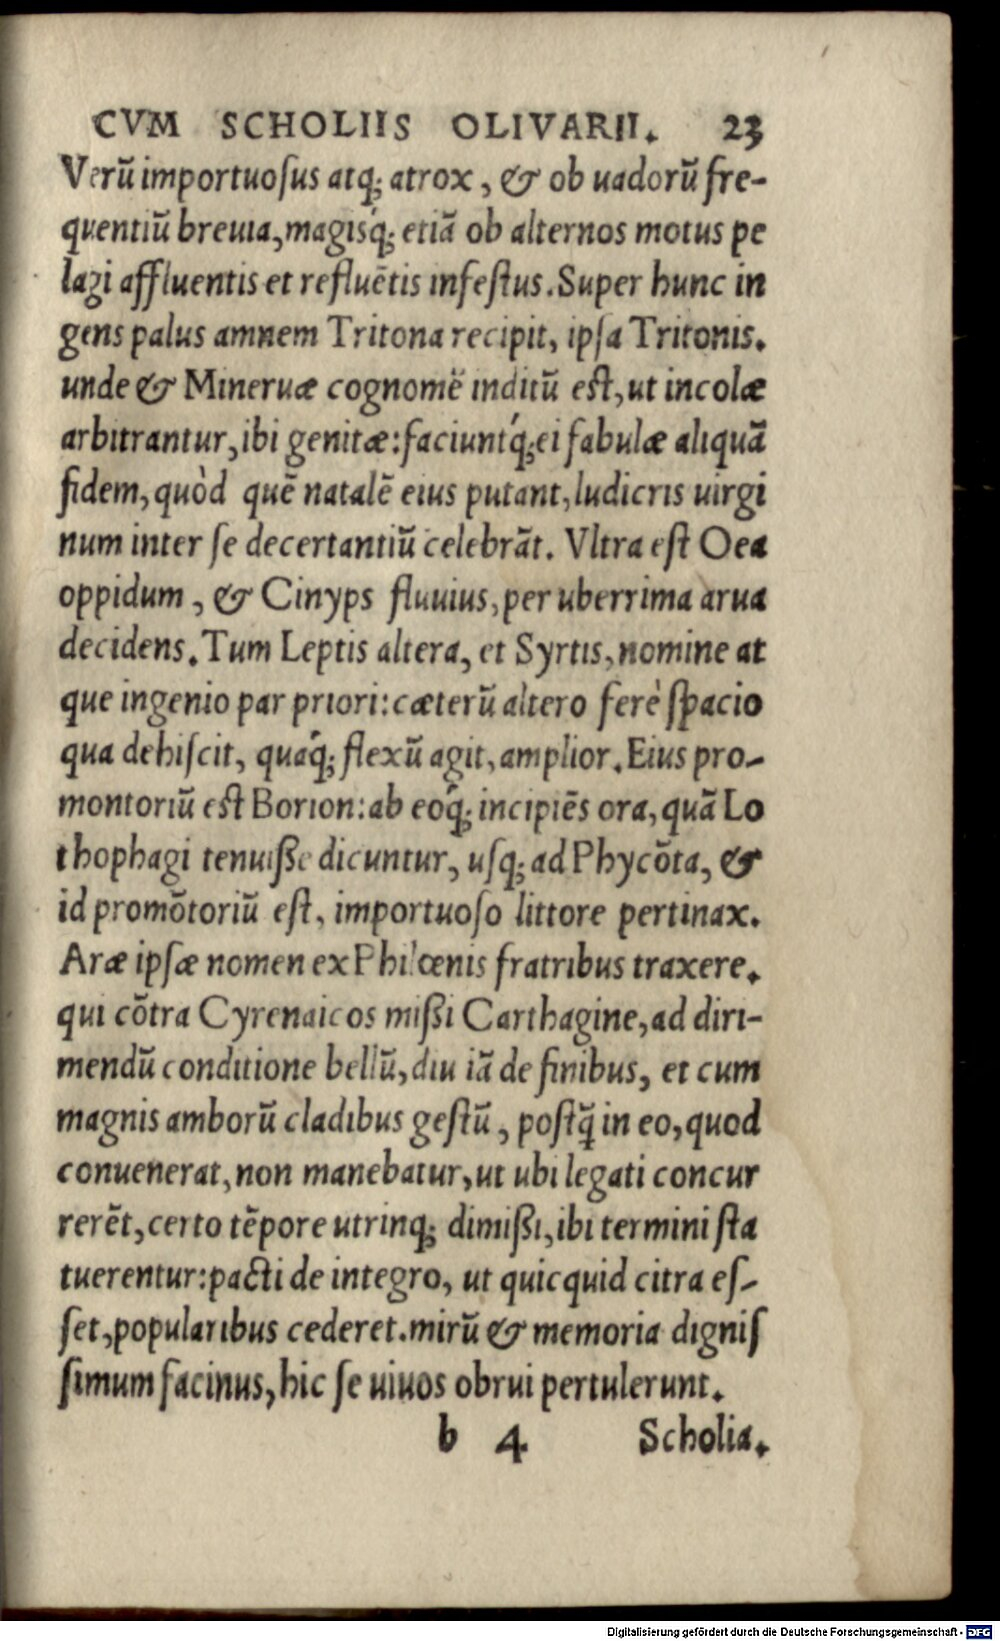 CVM SCHOLIIS OLIVARII. 23
Verũ importuoſus atq́; atrox, & ob uadorũ fre-
quentiũ breuia, magisq́; etiã ob alternos motus pe
lagi affluentis et refluẽtis infeſtus. Super hunc in
gens palus amnem Tritona recipit, ipſa Tritonis.
unde & Mineruæ cognomẽ inditũ eſt, ut incolæ
arbitrantur, ibi genitæ: faciuntq́; ei fabulæ aliquã
fidem, quòd quẽ natalẽ eius putant, ludicris uirgi
num inter ſe decertantiũ celebrãt. Vltra eſt Oea
oppidum, & Cinyps fluuius, per uberrima arua
decidens. Tum Leptis altera, et Syrtis, nomine at
que ingenio par priori: cæterũ altero ferè ſpacio
qua dehiſcit, quaq́; flexũ agit, amplior. Eius pro-
montoriũ eſt Borion: ab eoq́; incipiẽs ora, quã Lo
thophagi tenuiſſe dicuntur, uſq; ad Phycõta, &
id promõtoriũ eſt, importuoſo littore pertinax.
Aræ ipſæ nomen ex Philœnis fratribus traxere.
qui cõtra Cyrenaicos miſſi Carthagine, ad diri-
mendũ conditione bellũ, diu iã de finibus, et cum
magnis amborũ cladibus geſtũ, poſtq̃ in eo, quod
conuenerat, non manebatur, ut ubi legati concur
rerẽt, certo tẽpore utrinq; dimiſſi, ibi termini ſta
tuerentur: pacti de integro, ut quicquid citra eſ-
ſet, popularibus cederet. mirũ & memoria digniſ
ſimum facinus, hic ſe uiuos obrui pertulerunt.
b 4 Scholia.
Digitalisierung gefördert durch die Deutsche Forschungsgemeinschaft - DFG